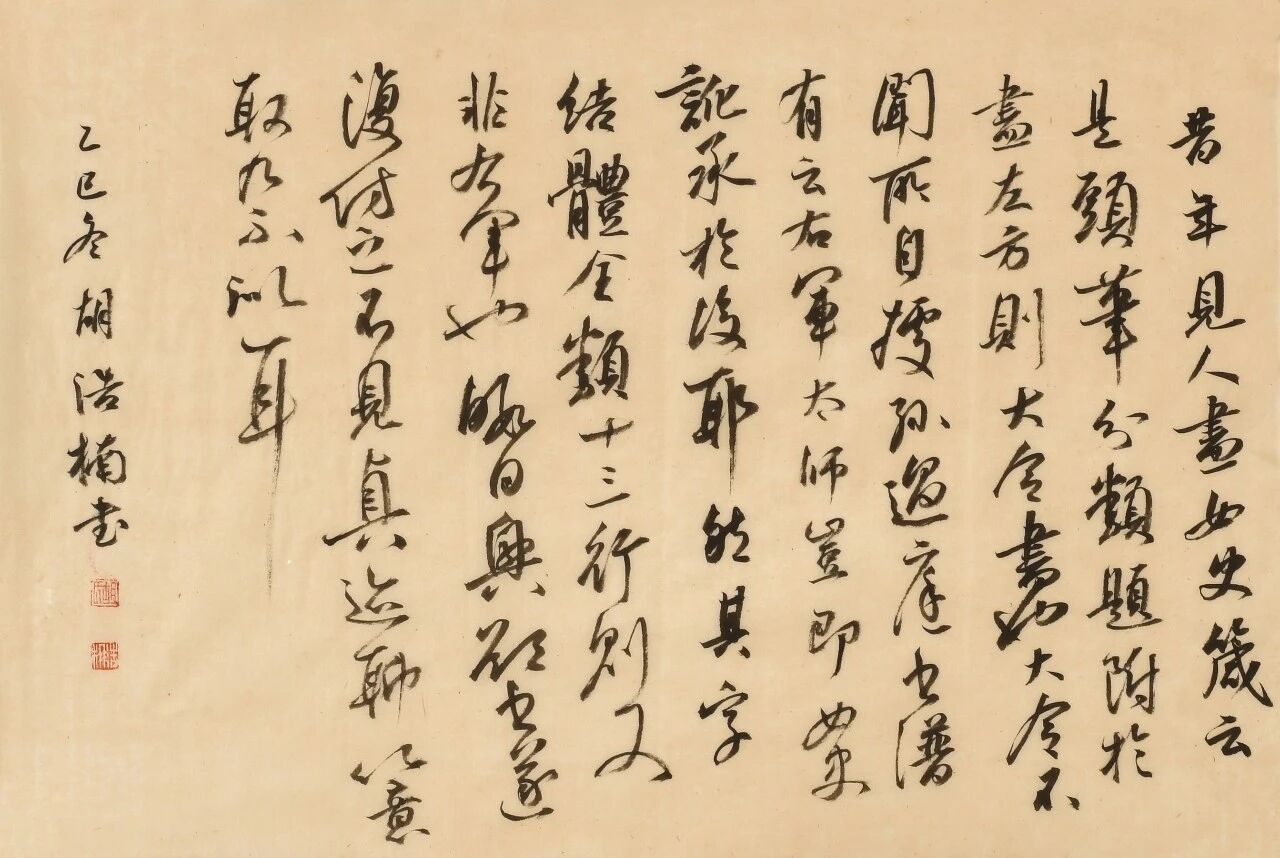 昔年見人畫女史箴云
是頭筆分類題附於
畫左方則大令書也大令不
聞所自據孫過庭書譜
有云右軍太師豈即女史
訛承於後耶然其字
結體全類十三行則又
非右軍也暇日興書遂
復仿之不見真迹聊以意
取乃不似耳
乙巳冬胡浩楠書